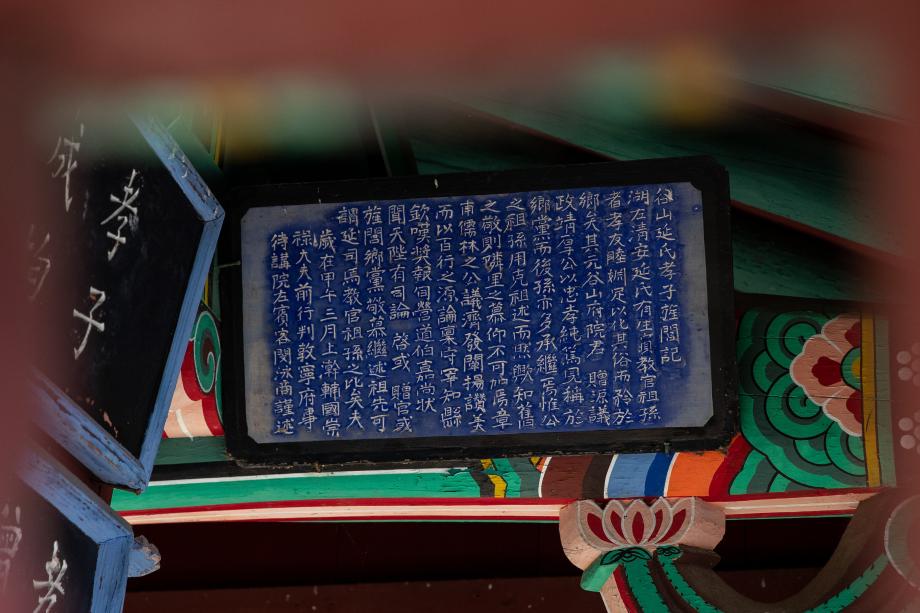 谷山延氏孝子旌閭記
湖左清安延氏有生員教官祖孫
著孝友睦婣足以化其俗而矜於
鄕矣其元谷山府院君 贈諡議
政靖厚公以忠孝純篤見稱於
鄕黨而後孫亦多承繼焉惟公
之祖孫用克祖述而熙 知舊
之敬則隣里之慕仰不可加焉章
甫儒林之公議濟發闡揚讚美
而以百行之源論稟守宰知縣
欽嘆奬報回營道伯直尚狀
聞天陛有司論 啓或 贈官或
旌閭鄕黨敬慕繼述祖先可
謂延司馬教官祖孫之比矣夫
歲在甲午三月上澣輔國崇
祿大夫前行判敦寧府事
待講院左賓客閔泳商謹述
孝
子
成
孝